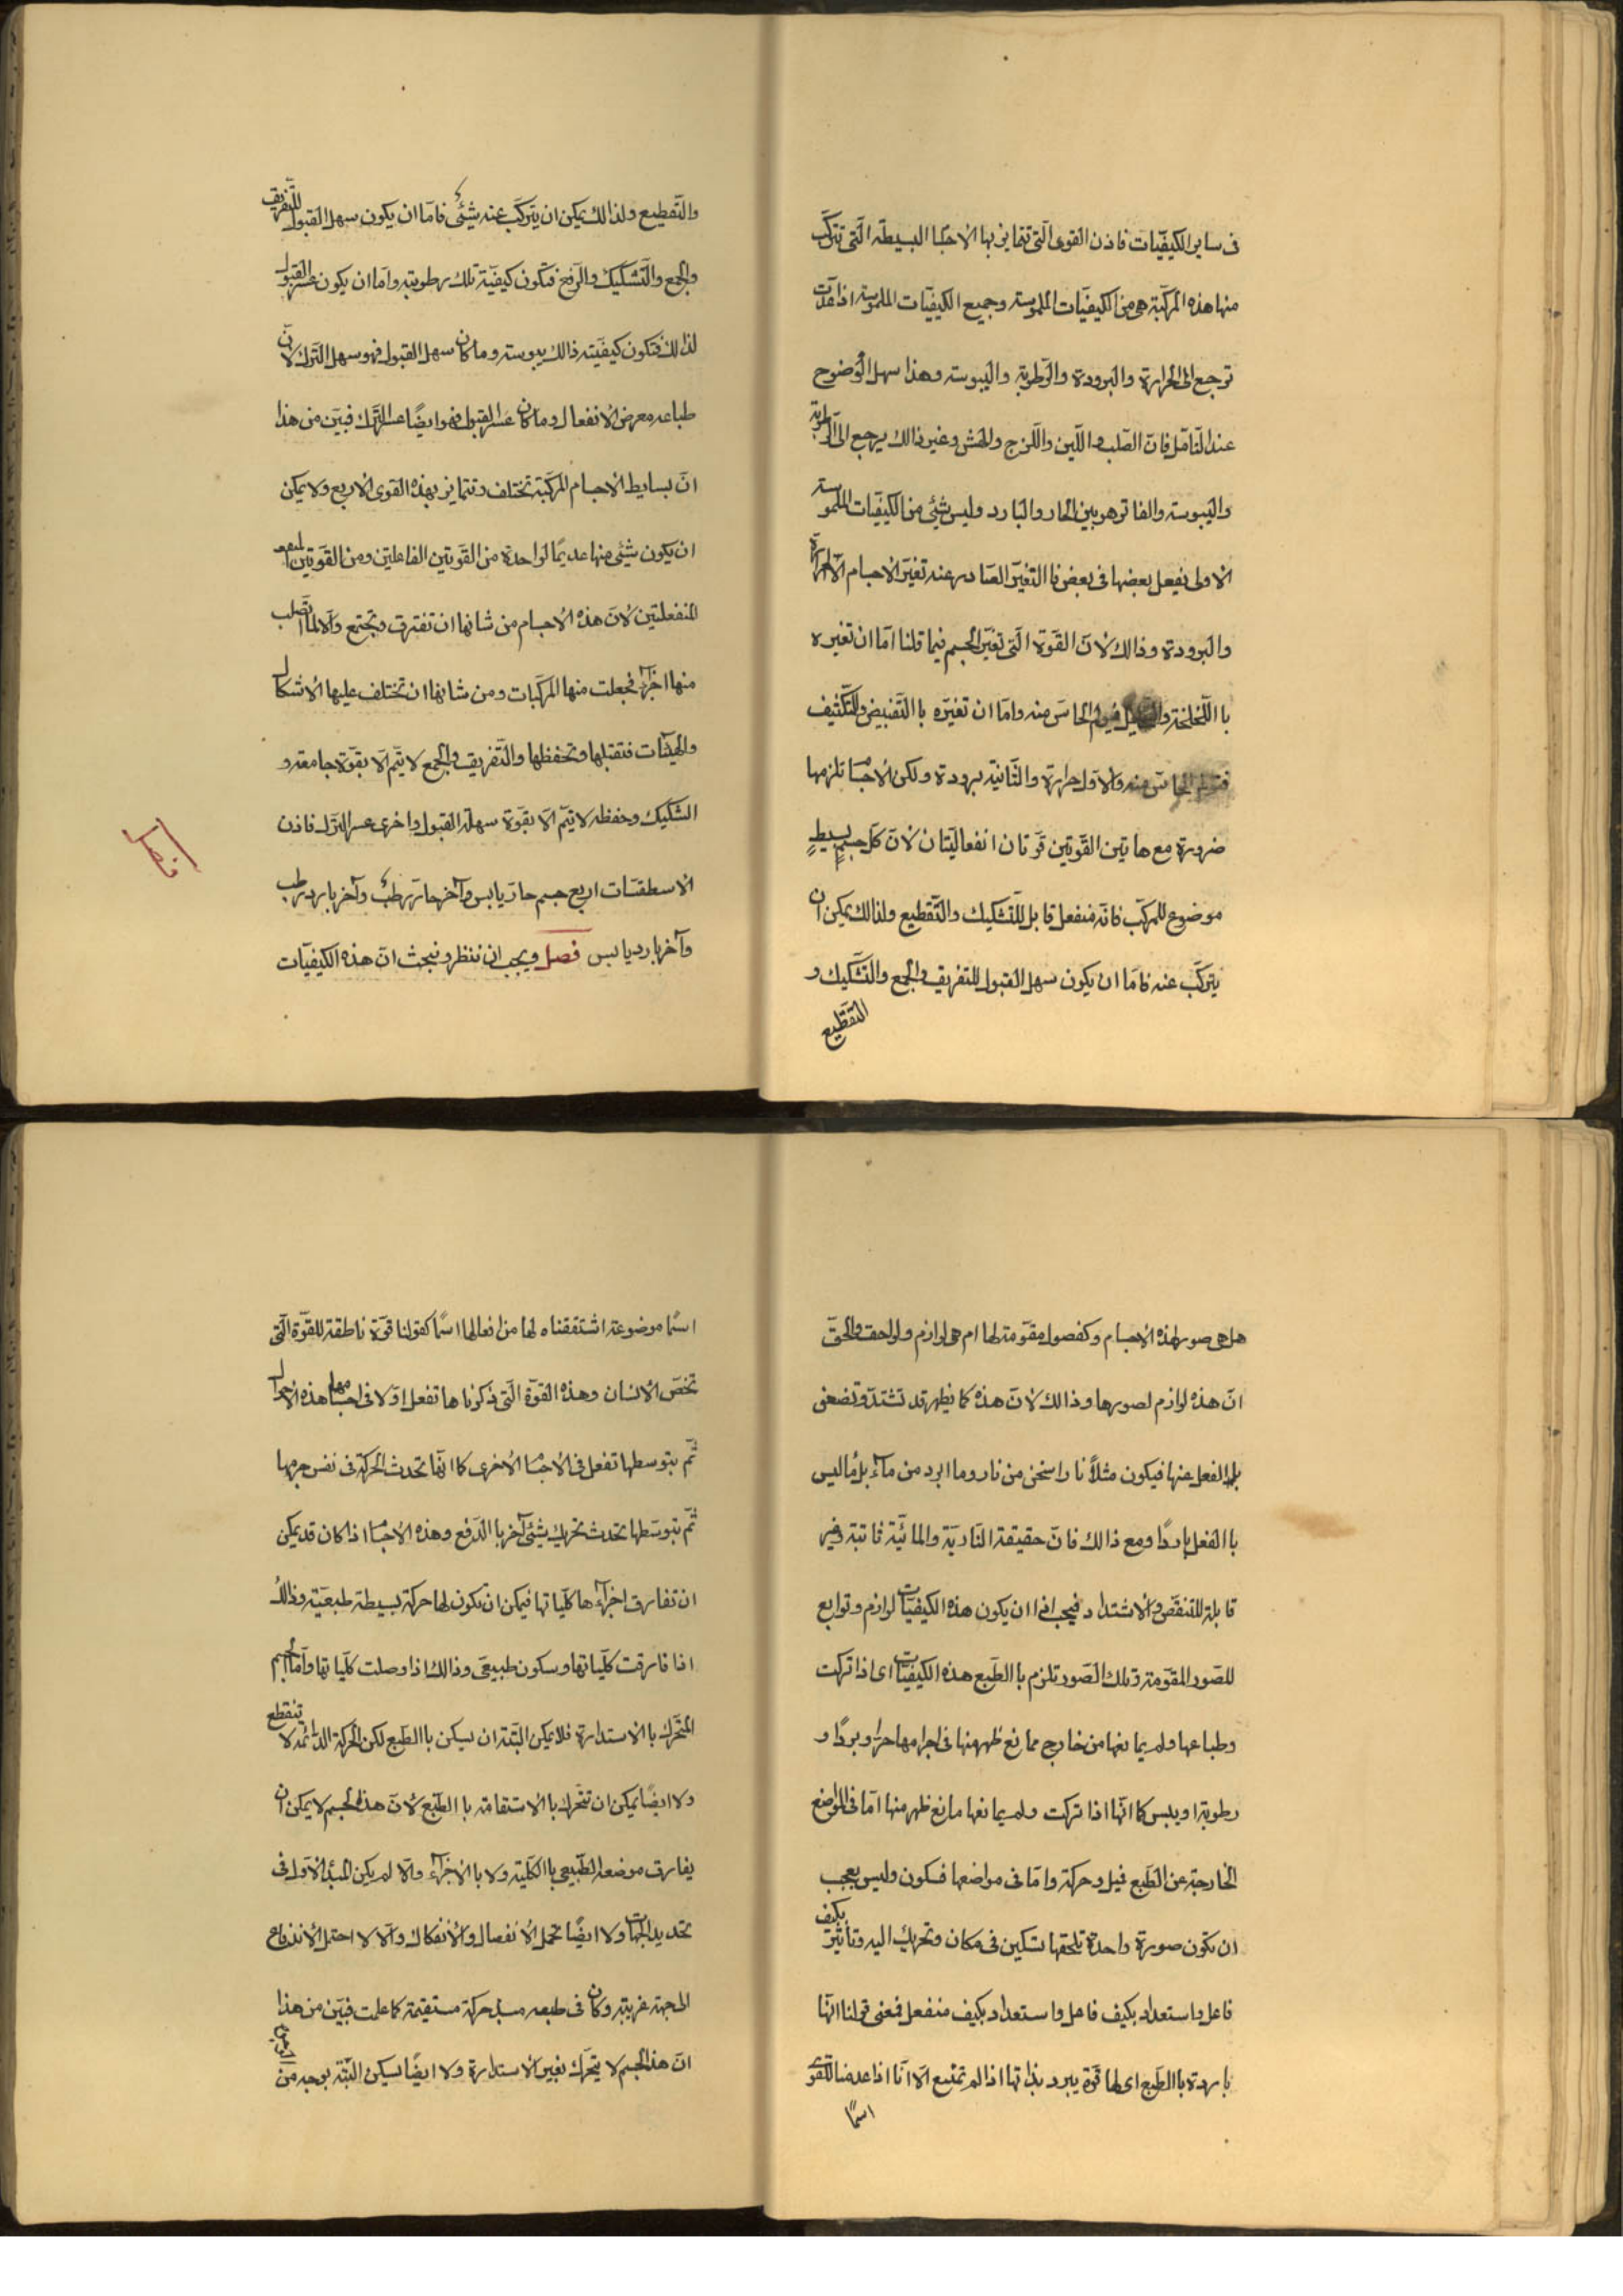 فى ساير الكيفيّات فاذن القوى الّتى تتمايز بها الاجسام البسيطة الّتى تتركّب
منها هذه المركّبة هى من الكيفيّات الملموسة وجميع الكيفيّات الملموسة اذا عدّت
ترجع الى الحرارة والبرودة والرّطوبة واليبوسة وهذا سهل الوضوح
عند التّامّل فانّ الصّلب واللّين واللّزج والهشّ وغير ذالك يرجع الى الرّطوبة
واليبوسة والفاتر هو بين الحار والبارد وليس شئى من الكيفيّات الملموسة
الاولى يفعل بعضها فى بعض فاالتّغيّر الصّادر عند تغيّر الاجسام الّا الحرارة
والبرودة وذالك لانّ القوّة الّتى تغيّر الجسم فيما قلنا امّا ان تغيره
باالتّخلخة والحاسّ منه وامّا ان تغيّره باالتّقبيض والتّكثيف
الحاسّ منه والاول حرارة والثّانية برودة ولكن الاجسام تلزمها
ضرورة مع هاتين القوّتين قوّتان انفعاليّتان لانّ كلّ جسم بسيط
موضوع للمركّب فانّه منفعل قابل للتّشكيك والتّقطيع ولذالك يمكن ان
يتركّب عنه فامّا ان يكون سهل القبول للتّفريق والجمع والتّشكيك و
التّقطيع
والتّقطيع ولذالك يمكن ان يتركّب عنه شئى فامّا ان يكون سهل القبول للتّفريق
والجمع والتّشكيك والرّفع فتكون كيفيّة تلك رطوبة وامّا ان يكون عسر القبول
لذالك فتكون كيفيّته ذالك يبوسة وما كان سهل القبول فهو سهل التّرك لانّ
طباعه معرض الانفعال وما كان عسر القبول فهو ايضًا عسر التّرك فبيّن من هذا
انّ بسايط الاجسام المركّبة تختلف وتتمايز بهذه القوى الاربع ولا يمكن
ان يكون شئى منها عديمًا لواحدة من القوّتين الفاعلتين ومن القوّتين
المنفعلتين لانّ هذه الاجسام من شانها ان تفترق وتجتمع والّا لما
منها اجزآء فجعلت منها المركّبات ومن شانها ان تختلف عليها الاشكال
والهيئات فتقبلها وتحفظها والتّفريق والجمع لا يتمّ الّا بقوّة جامعة و
الشكيك وحفظه لا يتمّ الّا بقوّة سهلة القبول واخرى عسر التّرك فاذن
الاسطقسّات اربع جسم حارّ يابس وآخر حارّ رطب وآخر بارد رطب
وآخر بارد يابس فصل ويجب ان ننظر ونبحث انّ هذه الكيفيّات
هل هى صور لهذه الاجسام وكفصول مقوّمة لها ام هى لوازم ولواحق والحقّ
انّ هذه لوازم لصورها وذالك لانّ هذه كما يظهر قد تشتدّ وتضعف
بل الفعل عنها فيكون مثلًا نارا سخن من نار وماء ابرد من مآء بل مآء ليس
باالفعل باردًا ومع ذالك فانّ حقيقة النّاريّة والمائيّة ثابتة وغير
قابلة للتنقّص والاشتداد فيجب اذا ان يكون هذه الكيفيّات لوازم وتوابع
للصّور المقوّمة وتلك الصّور تلزم باالطّبع هذه الكيفيّات اى اذا تركت
وطباعها ولم يمانعها من خارج ممانع ظهر منها فى اجرامها حرّا وبردًا و
رطوبة او يبس كما انّها اذا تركت ولم يمانعها مانع ظهر منها امّا فى المواضع
الخارجة عن الطّبع فميل وحركة وامّا فى مواضعها فسكون وليس بعجب
ان تكون صورة واحدة تلحقها تسكين فى مكان وتحريك اليه وتاثير بكيف
فاعل واستعداد بكيف فاعل واستعداد بكيف منفعل فمعنى قولنا انّها
باردة باالطّبع اى لها قوّة يبرد بذاتها اذا لم تمنع الّا انّا اذا عدمنا للقوى
اسمًا
اسمًا موضوعة اشتققناه لها من افعالها اسمًا كقولنا قوّة ناطقة للقوّة الّتى
تخصّ الانسان وهذه القوّة الّتى ذكرناها تفعل اوّلا فى اجسامها هذه الاحوال
ثمّ بتوسطها تفعل فى الاجسام الاخرى كما انّها تحدث الحركة فى نفس جرمها
ثمّ بتوسّطها تحدث تحريك شئى آخر باالدّفع وهذه الاجسام اذا كان قد يمكن
ان تفارق اجزآءها كلّياتها فيمكن ان تكون لها حركة بسيطة طبيعيّة وذالك
اذا فارقت كلّياتها وسكون طبيعىّ وذالك اذا وصلت كلّياتها وامّا الجسم
المتحّرك باالاستدارة فلا يمكن البتّة ان يسكن باالطّبع لكن الحركة الدائمة لا تنقطع
ولا ايضًا يمكن ان تتحّرك باالاستقامة باالطّبع لانّ هذا الجسم لا يمكن ان
يفارق موضعه الطّبيعى باالكلّية ولا باالاجزآء والّا لم يكن المبدأ الاوّل فى
تحديد الجهات ولا ايضًا تحمل الانفصال والانفكاك والّا لا احتمل الاندفاع
الى جهة غريبة وكان فى طبعه مبدأ حركة مستقيمة كما علمت فبيّن من هذا
انّ هذا الجسم لا يتحّرك بغير الاستدارة ولا ايضًا يسكن البتّة بوجه من